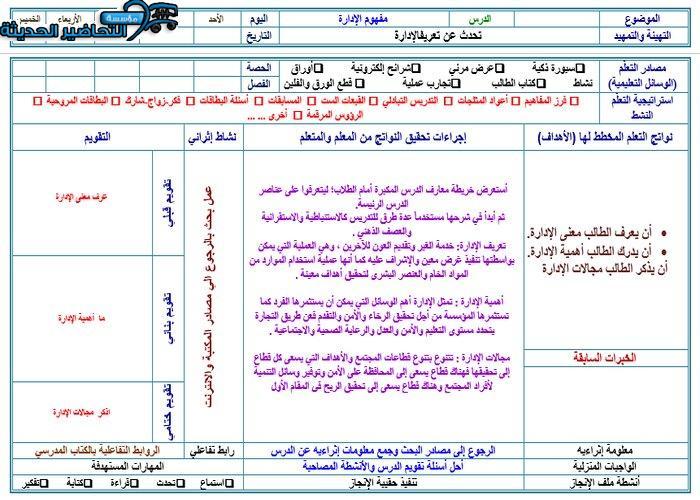 مؤسسة التحاضير الحديثة
الموضوع الدرس مفهوم الإدارة اليوم الأحد الأربعاء الخميس
التهيئة والتمهيد تحدث عن تعريفالإدارة التاريخ
مصادر التعلم سبورة ذكية عرض مرئي شرائح إلكترونية أوراق الحصة
(الوسائل التعليمية) نشاط كتاب الطالب تجارب عملية قطع الورق والفلين الفصل
استراتيجية التعلم فرز المفاهيم أعواد المثلجات التدريس التبادلي القبعات الست المسابقات أسئلة البطاقات فكر.زواج.شارك البطاقات المروحية
النشط الرؤوس المرقمة أخرى ... ...
نواتج التعلم المخطط لها (الأهداف) إجراءات تحقيق النواتج من المعلم والمتعلم نشاط إثرائي التقويم
أن يعرف الطالب معنى الإدارة.
أن يدرك الطالب أهمية الإدارة.
أن يذكر الطالب مجالات الإدارة
الخبرات السابقة
أستعرض خريطة معارف الدرس المكبرة أمام الطلاب؛ ليتعرفوا على عناصر
الدرس الرئيسة.
ثم أبدأ في شرحها مستخدماً عدة طرق للتدريس كالاستنباطية والاستقرائية
والعصف الذهني .
تعريف الإدارة: خدمة الغير وتقديم العون للآخرين ، وهي العملية التي يمكن
بواسطتها تنفيذ غرض معين والإشراف عليه كما أنها عملية استخدام الموارد من
المواد الخام والعنصر البشرى لتحقيق أهداف معينة .
أهمية الإدارة : تمثل الإدارة أهم الوسائل التي يمكن أن يستثمرها الفرد كما
تستثمرها المؤسسة من أجل تحقيق الرخاء والأمن والتقدم فعن طريق التجارة
يتحدد مستوى التعليم والأمن والعدل والرعاية الصحية والاجتماعية .
مجالات الإدارة : تتنوع بتنوع قطاعات المجتمع والأهداف التي يسعى كل قطاع
إلى تحقيقها فهناك قطاع يسعى إلى المحافظة على الأمن وتوفير وسائل التنمية
لأفراد المجتمع وهناك قطاع يسعى إلى تحقيق الربح فى المقام الأول
عمل بحث بالرجوع الي مصادر المكتبة والانترنت
تقويم قبلي
عرف معنى الإدارة
تقويم بنائي
ما أهمية الإدارة
تقويم ختامي
اذكر مجالات الإدارة
معلومة إثرائيه الرجوع إلى مصادر البحث وجمع معلومات إثرائيه عن الدرس رابط تفاعلي الروابط التفاعلية بالكتاب المدرسي
الواجبات المنزلية أحل أسئلة تقويم الدرس والأنشطة المصاحبة المهارات المستهدفة
أنشطة ملف الإنجاز تنفيذ حقيبة الإنجاز استماع تحدث قراءة كتابة تفكير